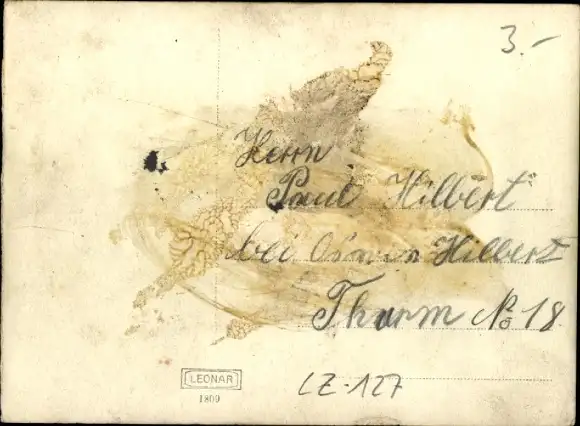 3.-
Herrn
Paul Hilbert
bei Hilbert
Thurm No 18.
LEONAR
1809
LZ-127